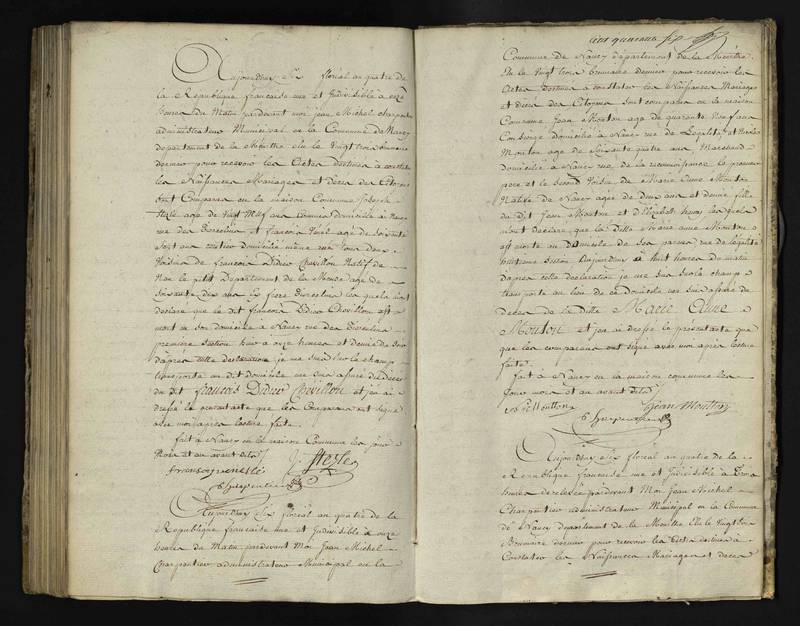 Aujourdhuy six floreal an quatre de
la Republique francaise une et Indivisible a onze
heures du Matin pardevant moi jean Michel charpentier
administrateur Municipal en la Commune de Nancy
departement de la Meurthe elu le vingt trois brumaire
dernier pour recevoir les Actes destines a constater
les Naissances Mariages et deces des Citoyens
sont Comparus en la maison Commune Joseph
Stezle age de vingt Neuf ans Commis domicilie a Nancy
rue des et francois age de soixante
sept ans domicilie même rue tous deux
Voisins de francois Didier Chevillon Natif de
Nan le petit Departement de la Meuse age de
Soixante dix ans Ex frere Directines lesquels m'ont
declare que le dit francois Didier Chevillon est
mort en son domicile a Nancy rue des
premiere section hier a onze heures et demie du soir
d'après cette declaration je me suis sur le champ
transporte au dit domicile me suis assure du deces
du dit francois Didier Chevillon et j'en ai
dressé le present acte que les Comparans ont signé
avec moi apres lecture faite
fait a Nancy en la maison Commune les jour
Mois et an avant dits
Stezle
Charpentier
Aujourdhuy six floreal an quatre de la
Republique francaise une et Indivisible a onze
heures du Matin pardevant Moi Jean Michel
Charpentier administrateur Municipal en la
cent quarante six
Commune de Nancy département de la Meurthe
Elu le vingt trois brumaire dernier pour recevoir les
Actes destines a constater les Naissances Mariages
et deces des Citoyens sont comparus en la maison
Commune Jean Mouton age de quarante neuf ans
Concierge domicilié a Nancy rue de l'egalité et Nicolas
Mouton age de soixante quatre ans Marchand
domicilié a Nancy rue de la reconnaissance le premier
pere et le second Voisin de Marie Anne Mouton
Native de Nancy agée de deux ans et demie fille
du dit Jean Mouton et d'Elizabeth henry lesquels
m'ont declaré que la ditte Marie anne Mouton
est morte au domicile de ses parens rue de l'egalité
huitieme section aujourdhuy a huit heures du matin
d'apres cette declaration je me suis sur le champ
transporte au lieu de ce domicile me suis assuré du
deces de la ditte Marie Anne
Mouton et j'en ai dressé le present acte que
que les comparans ont signé avec moi apres lecture
faite.
fait à Nancy en la maison commune les
Jour mois et an avant dits
Moutton jean Moutton
Charpentier
Aujourdhuy six floreal an quatre de la
Republique francaise une et Indivisible a trois
heures de relevee pardevant Moi Jean Michel
Charpentier administrateur Municipal en la Commune
de Nancy departement de la Meurthe Elu le vingt trois
Brumaire dernier pour recevoir les Actes destines a
Constater les Naissances Mariages et deces